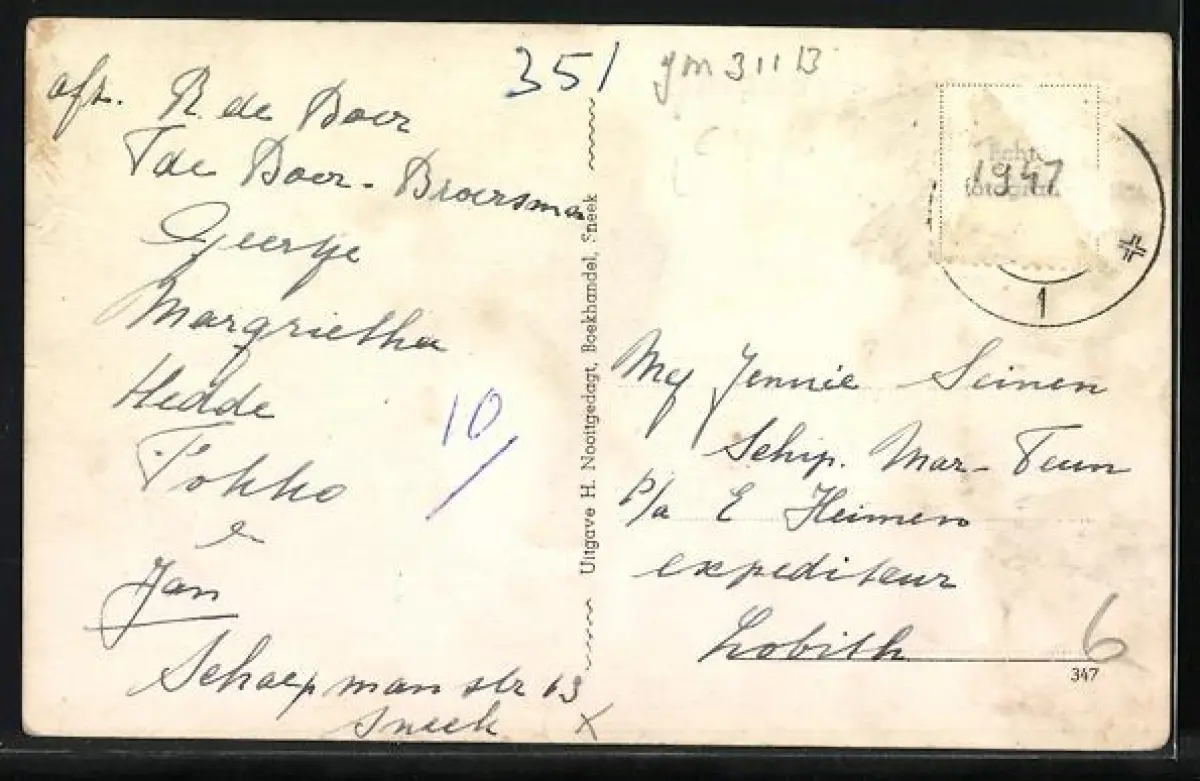 351
gm 311 B
afz. R. de Boer
T de Boer - Broersma
Geertje
Margrietha
Hedde
Fokko
&
Jan
Schaepmanstr 13
Sneek X
10/
Uitgave H. Nooitgedagt, Boekhandel, Sneek
Echte
fotografi
1947
1
Mej Jennie Seinen
Schip. Mar-Teun
P/a E Heimen
expediteur
Lobith
6
347